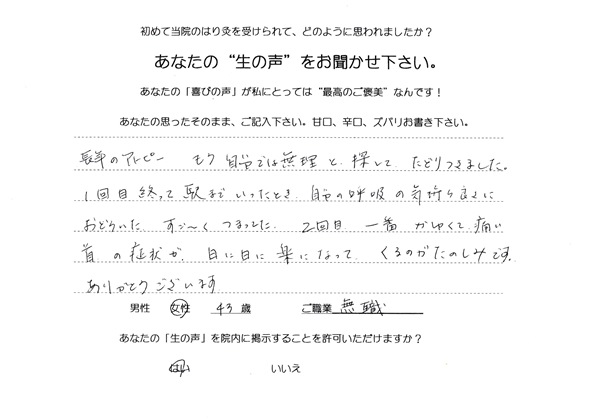 初めて当院のはり灸を受けられて、どのように思われましたか?
あなたの“生の声”をお聞かせ下さい。
あなたの「喜びの声」が私にとっては“最高のご褒美”なんです!
あなたの思ったそのまま、ご記入下さい。甘口、辛口、ズバリお書き下さい。
長年のアトピー もう 自分では無理 と、探して、たどりつきました。
1回目 終って 駅まで いったとき、自分の呼吸の気持ち良さに
おどろいた すご〜く つまってた。 2回目 一番 かゆくて、痛い
首の症状が、日に日に楽になって くるのがたのしみです。
ありがとうございます
男性 女性 43 歳 ご職業 無職
あなたの「生の声」を院内に掲示することを許可いただけますか?
はい いいえ